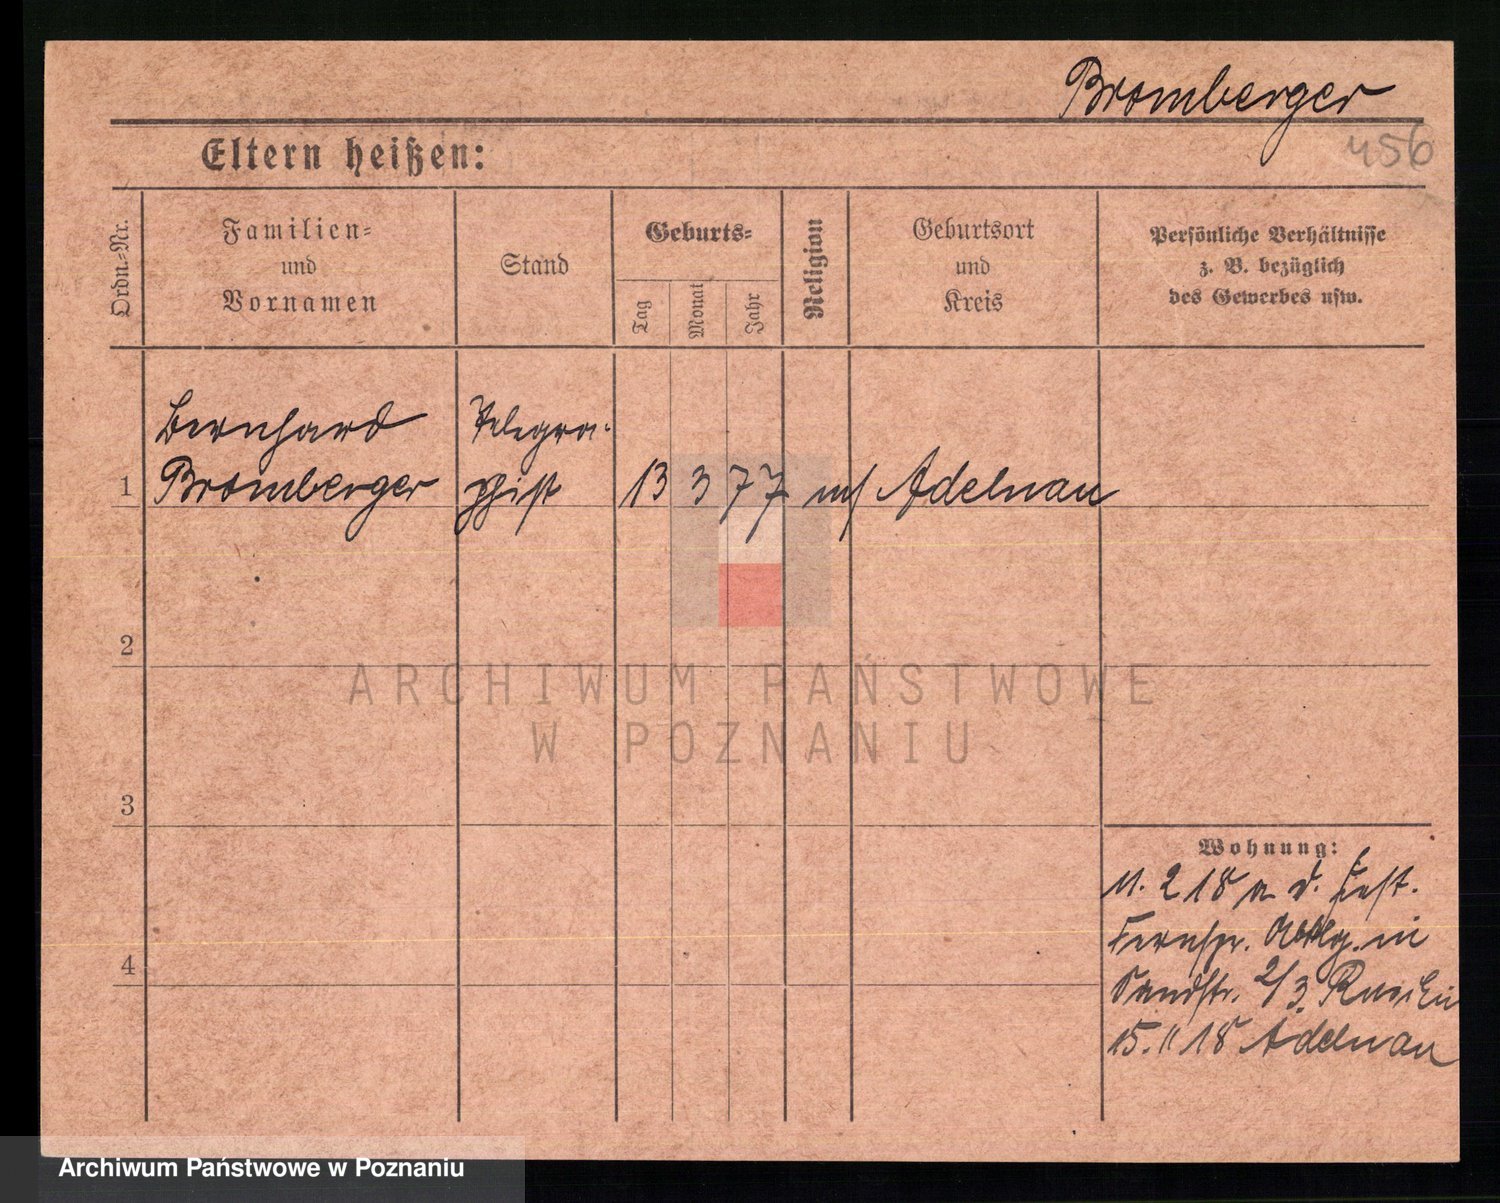 Bromberger
456
Eltern heißen:
Ordn.-Nr.
Familien-
und
Vornamen
Stand
Geburts-
Tag
Monat
Jahr
Religion
Geburtsort
und
Kreis
Persönliche Verhältnisse
z. B. bezüglich
des Gewerbes usw.
Bernhard
Bromberger
Telegra-
phist
1 13 3 77 mos Adelnau
2
ARCHIWUM PAŃSTWOWE
W POZNANIU
3
Wohnung:
11. 2 18 v. d. Fest.
Fernspr. Abtlg. in
4
Sandstr. 2/3
15. 11 18 Adelnau
Archiwum Państwowe w Poznaniu